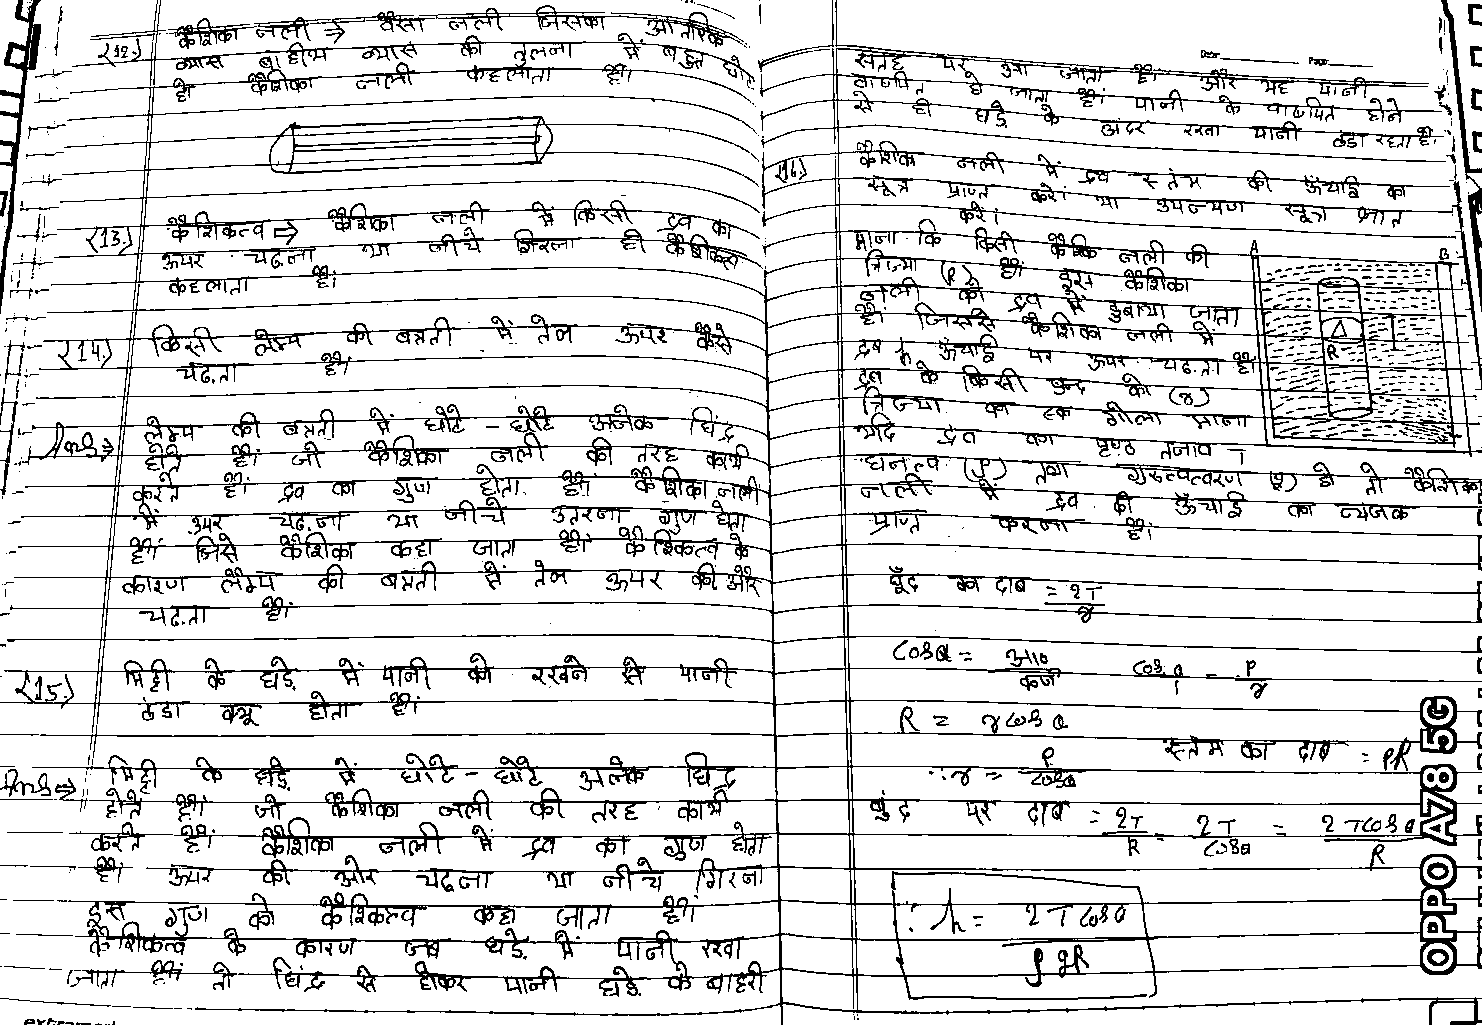 (12.) कैशिका नली ⇒ वैसा नली जिसका आंतरिक
व्यास बाहीय व्यास की तुलना में बहुत छोटा
हो कैशिका नली कहलाता है।
(13.) कैशिकत्व ⇒ कैशिका नली में किसी द्रव का
ऊपर चढ़ना या नीचे गिरना ही कैशिकत्व
कहलाता है।
(14.) किसी लैम्प की बत्ती में तेल ऊपर कैसे
चढ़ता है।
Ans ⇒ लैम्प की बत्ती में छोटे - छोटे अनेक छिद्र
होते हैं। जो कैशिका नली की तरह कार्य
करते हैं। द्रव का गुण होता है। कैशिका नली
में ऊपर चढ़ना या नीचे उतरना गुण होता
है। जिसे कैशिका कहा जाता है। कैशिकत्व के
कारण लैम्प की बत्ती में तेल ऊपर की ओर
चढ़ता है।
(15.) मिट्टी के घड़े में पानी को रखने से पानी
ठंडा क्यू होता है।
Ans ⇒ मिट्टी के घड़े में छोटे - छोटे अनेक छिद्र
होते हैं। जो कैशिका नली की तरह कार्य
करते हैं। कैशिका नली में द्रव का गुण होता
है। ऊपर की ओर चढ़ना या नीचे गिरना
इस गुण को कैशिकत्व कहा जाता है।
कैशिकत्व के कारण जब घड़े में पानी रखा
जाता है। तो छिद्र से होकर पानी घड़े के बाहरी
Date Page
सतह पर आ जाता है। और यह पानी
वाष्पित हो जाता है। पानी के वाष्पित होने
से ही घड़े के अंदर रखा पानी ठंडा रहता है।
(16.) कैशिका नली में द्रव स्तंभ की ऊँचाई का
सूत्र प्राप्त करें। या उपन्यण सूत्र प्राप्त
करें।
माना कि किसी कैशिक नली की
त्रिज्या (R) है। इस कैशिका
नली को द्रव में डुबाया जाता
है। जिससे कैशिका नली में
द्रव h ऊँचाई पर ऊपर चढ़ता है।
द्रव के किसी बुन्द को (r)
त्रिज्या का एक गोला माना
यदि द्रव का पृष्ठ तनाव T
घनत्व (ρ) तथा गुरुत्वत्वरण (g) हो तो कैशिका
नली में द्रव की ऊँचाई का व्यंजक
प्राप्त करना है।
A B
R
बूँद का दाब = 2T/r
cosθ = आ०/कर्ण cosθ/1 = R/r
R = r cosθ
स्तंभ का दाब = PR
∴ r = R/cosθ
बुंद पर दाब = 2T/R = 2T/cosθ = 2Tcosθ/R
∴ h = 2Tcosθ/ρgR
OPPO A78 5G